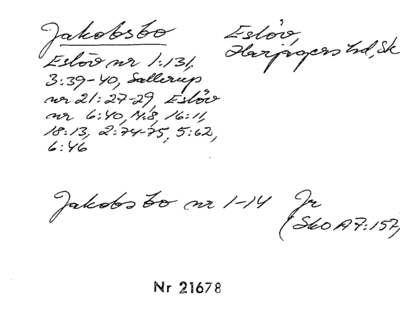 Jakobsbo Eslöv,
Harjagers hd, Sk
Eslöv nr 1:131,
3:39-40, Sallerup
nr 21:27-29, Eslöv
nr 6:40, 14:8, 16:11,
18:13, 2:74-75, 5:62,
6:46
Jakobsbo nr 1-14 Jr
(SkO A7:157,
Nr 21678